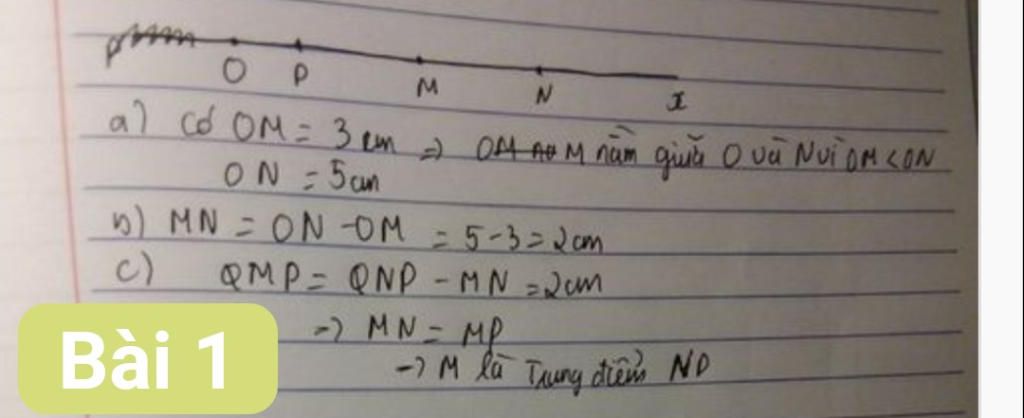 O P M N x
a) Có OM = 3 cm => M nằm giữa O và N vì OM < ON
ON = 5 cm
b) MN = ON - OM = 5 - 3 = 2 cm
c) MP = NP - MN = 2 cm
-> MN = MP
-> M là Trung điểm NP
Bài 1